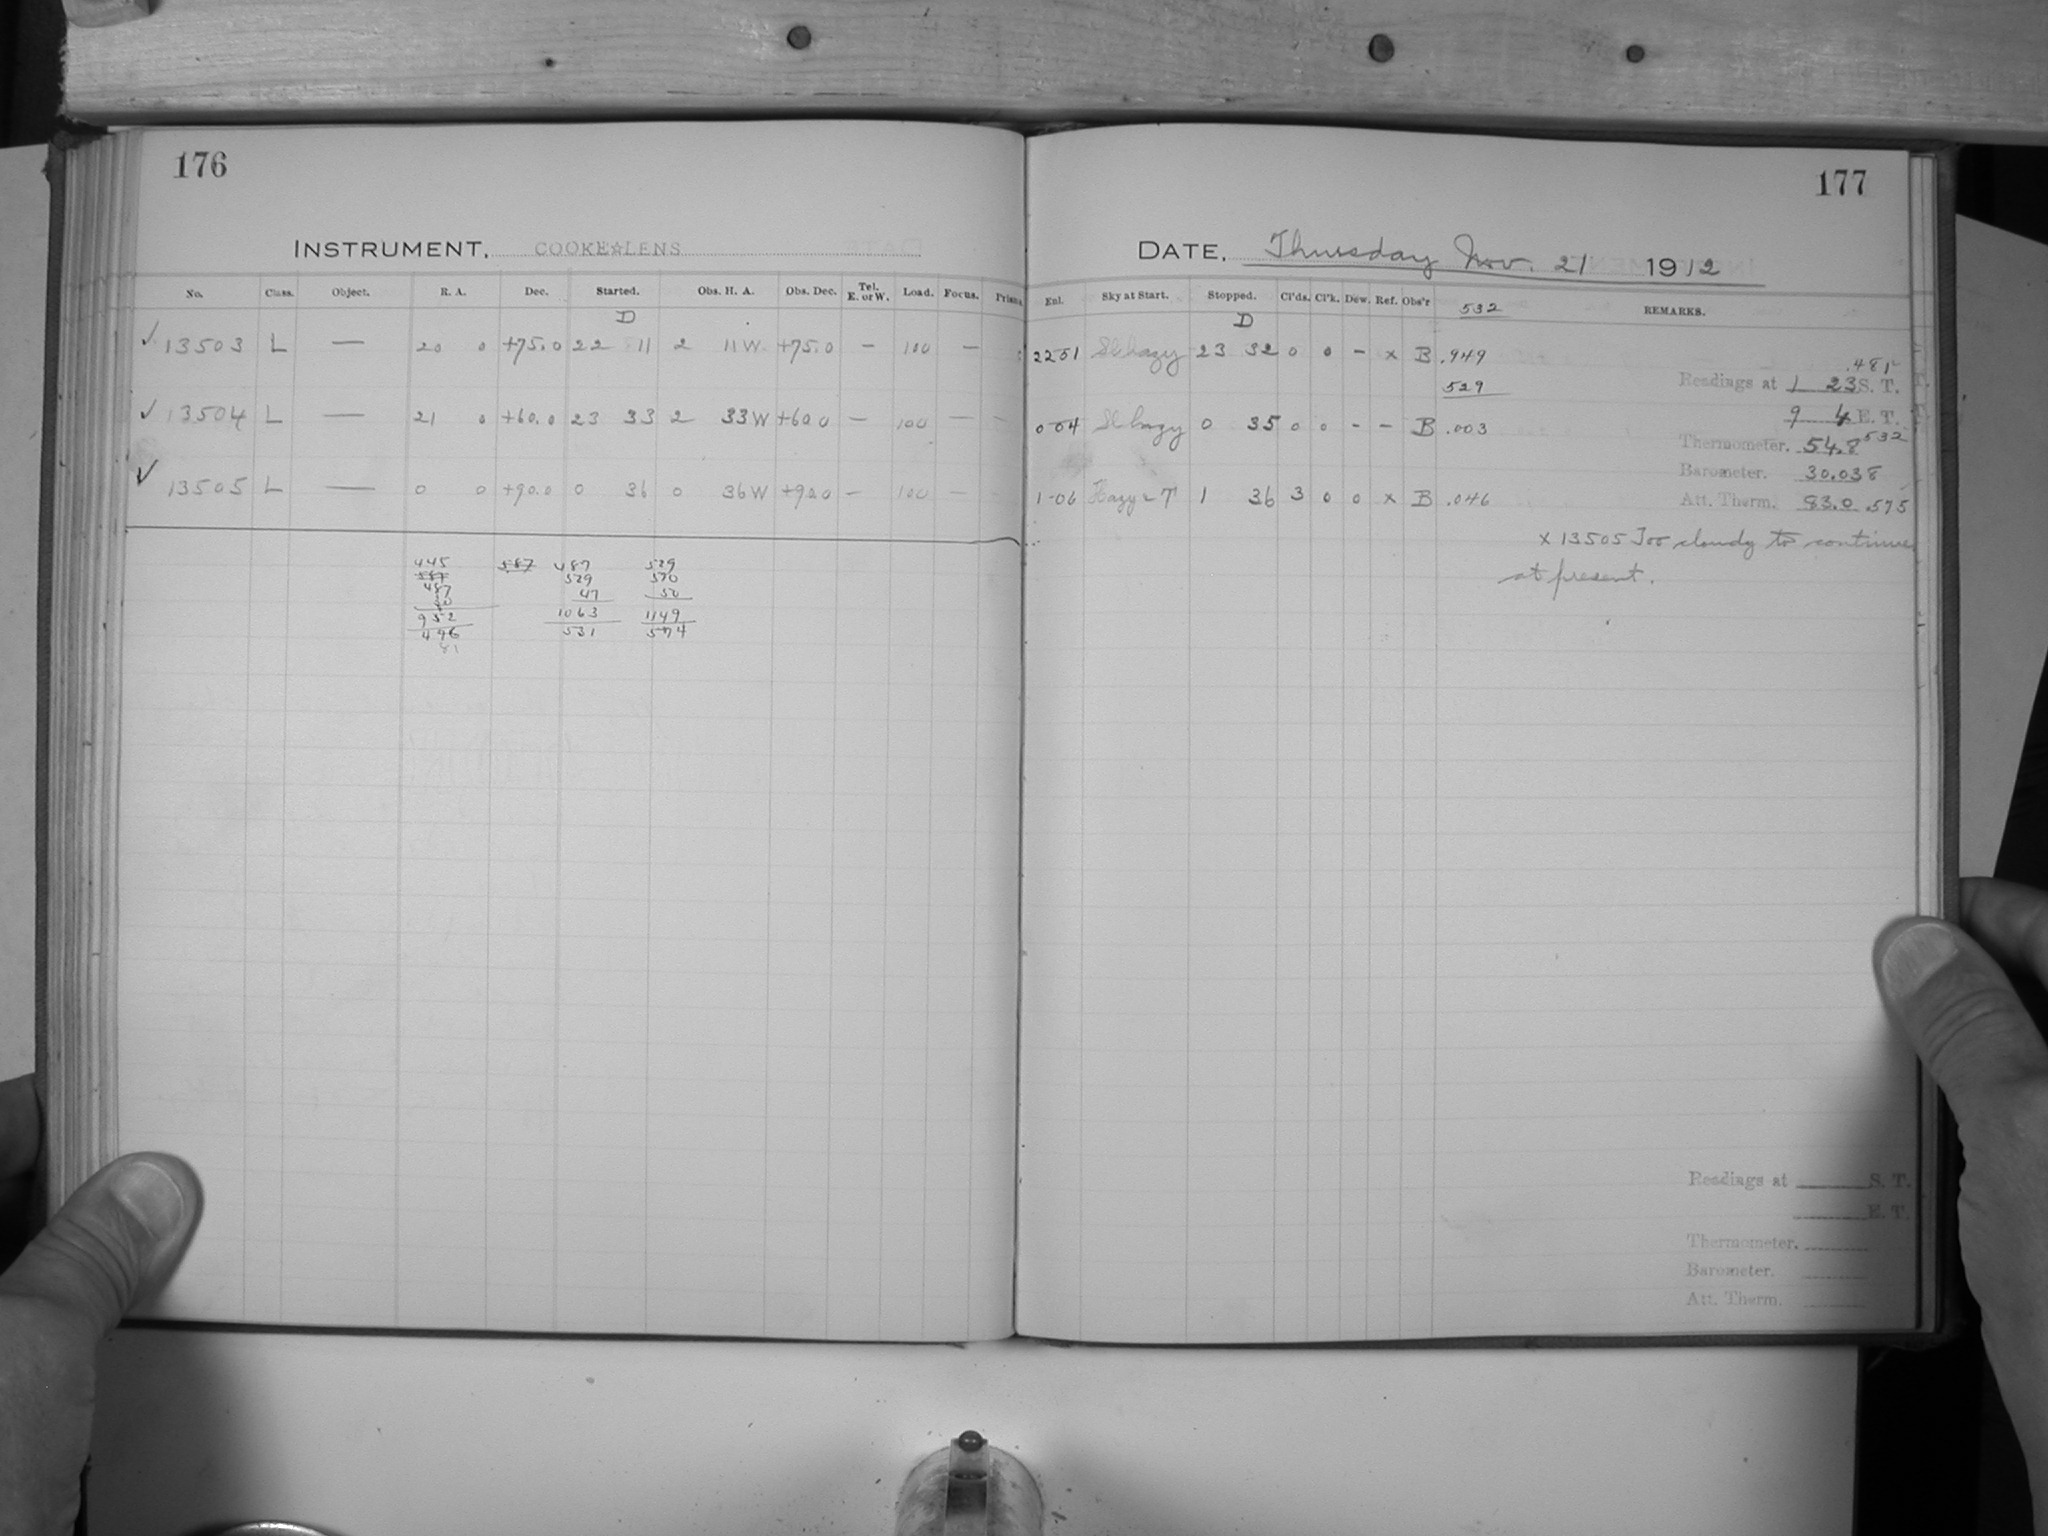 176
INSTRUMENT. COOKE☆LENS
No. Class. Object. R. A. Dec. Started. Obs. H. A. Obs. Dec. Tel. E. or W. Load. Focus. Prism
D
✓ 13503 L — 20 0 +75.0 22 11 2 11 W +75.0 — 100 —
✓ 13504 L — 21 0 +60.0 23 33 2 33 W +60.0 — 100 — —
✓ 13505 L — 0 0 +90.0 0 36 0 36 W +90.0 — 100 — —
445 587 487 529
587 529 570
487 47 50
20 1063 1149
952 531 574
496
81
177
DATE. Thursday Nov. 21 1912
Enl. Sky at Start. Stopped. Cl'ds. Cl'k. Dew. Ref. Obs'r 532 REMARKS.
D
22 51 Sl hazy 23 32 0 0 – x B .949
529
0 04 Sl hazy 0 35 0 0 – – B .003
1 06 Hazy 1 36 3 0 0 x B .046
.481
Readings at 1 23 S. T.
9 4 E. T.
Thermometer. 54.8 532
Barometer. 30.038
Att. Therm. 83.0 .575
x 13505 Too cloudy to continue
at present.
Readings at S. T.
E. T.
Thermometer.
Barometer.
Att. Therm.